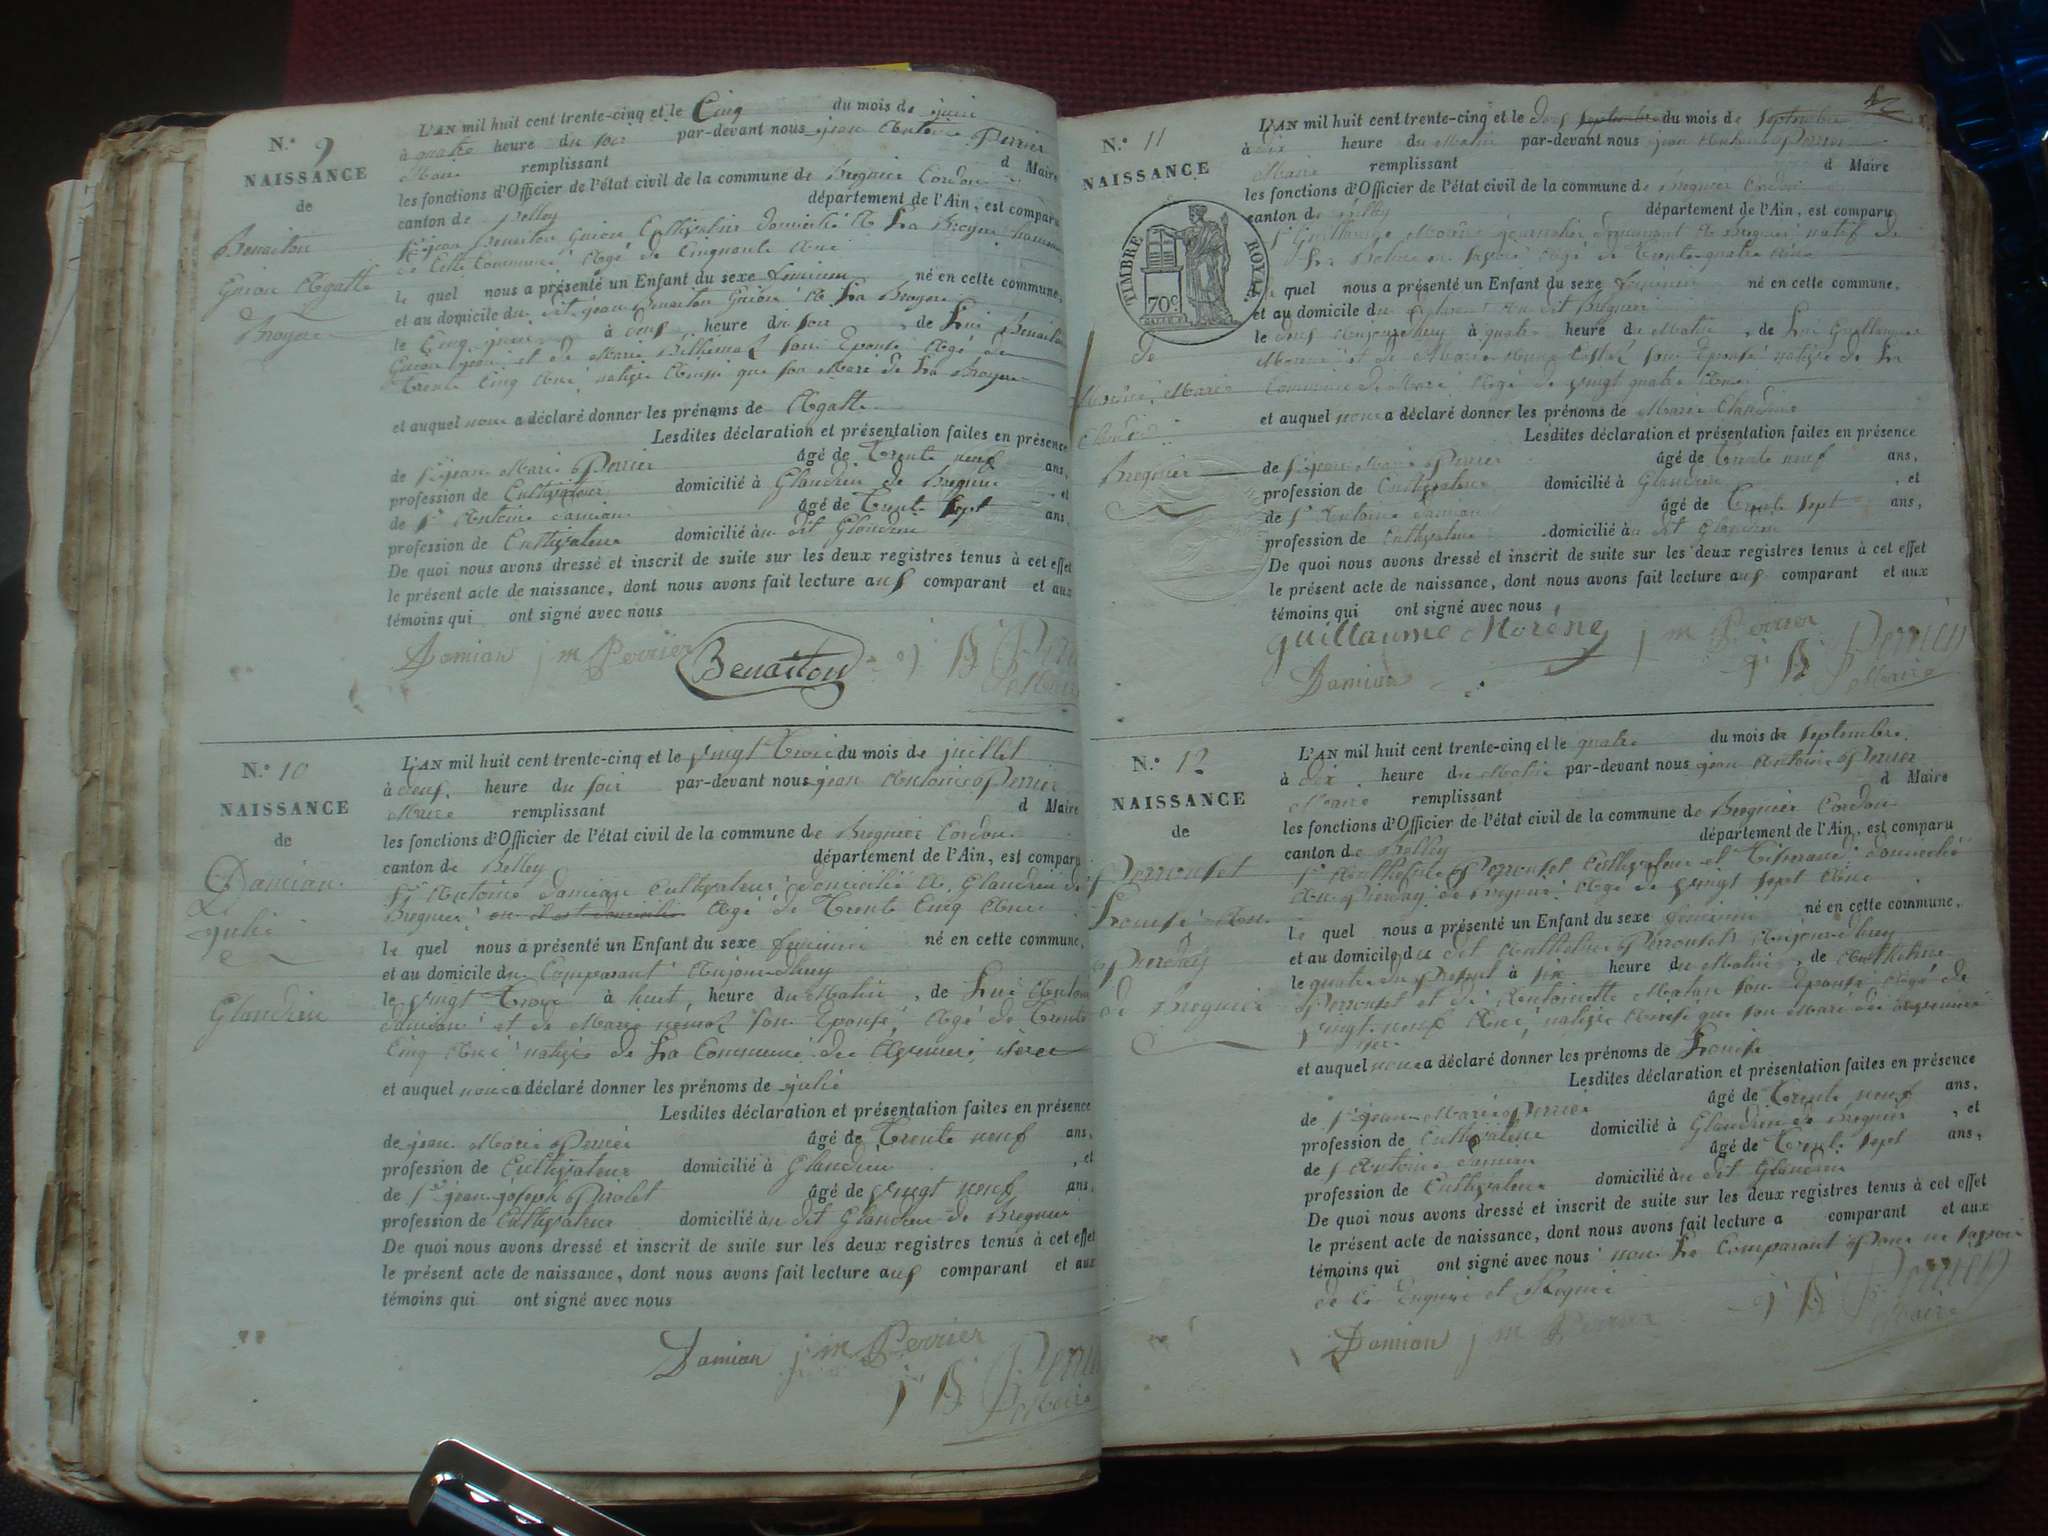 N.º 9
NAISSANCE
de
Benaiton
Guion Agatte
Broyer
L'AN mil huit cent trente-cinq et le Cinq du mois de juin
à quatre heure du soir par-devant nous jean Antoine Perrier
Maire remplissant d Maire
les fonctions d'Officier de l'état civil de la commune de Bregnier Cordon
canton de Belley département de l'Ain, est comparu
Sr jean Benaiton Guion Cultivateur domicilié A La Broyer hameau
de Cette Commune Agé de Cinquante Ans
le quel nous a présenté un Enfant du sexe feminin né en cette commune,
et au domicile du dit jean Benaiton Guion A La Broyer
le Cinq juin à deux heure du soir, de Lui Benaiton
Guion jean et de Marie son Epouse Agé de
Trente Cinq Ans native Ainsi que son Mari de La Broyer
et auquel nous a déclaré donner les prénoms de Agatte
Lesdites déclaration et présentation faites en présence
de Sr jean Marie Perrier âgé de Trente neuf ans,
profession de Cultivateur domicilié à Glandieu de Bregnier, et
de Sr Antoine Damian âgé de Trente Sept ans,
profession de Cultivateur domicilié au dit Glandieu
De quoi nous avons dressé et inscrit de suite sur les deux registres tenus à cet effet
le présent acte de naissance, dont nous avons fait lecture aux comparant et aux
témoins qui ont signé avec nous
Damian j m Perrier Benaiton Perrier
Maire
N.º 10
NAISSANCE
de
Damian
julie
Glandieu
L'AN mil huit cent trente-cinq et le vingt Trois du mois de juillet
à deux heure du soir par-devant nous jean Antoine Perrier
Maire remplissant d Maire
les fonctions d'Officier de l'état civil de la commune de Bregnier Cordon
canton de Belley département de l'Ain, est comparu
Sr Antoine Damian Cultivateur domicilié A Glandieu de
Bregnier Agé de Trente Cinq Ans
le quel nous a présenté un Enfant du sexe feminin né en cette commune,
et au domicile du Comparant Aujourdhuy
le vingt Trois à huit heure du Matin, de Lui Antoine
Damian et de Marie son Epouse Agé de Trente
Cinq Ans native de La Commune
et auquel nous a déclaré donner les prénoms de julie
Lesdites déclaration et présentation faites en présence
de jean Marie Perrier âgé de Trente neuf ans,
profession de Cultivateur domicilié à Glandieu, et
de Sr jean joseph Pirolet âgé de vingt neuf ans,
profession de Cultivateur domicilié au dit Glandieu de Bregnier
De quoi nous avons dressé et inscrit de suite sur les deux registres tenus à cet effet
le présent acte de naissance, dont nous avons fait lecture aux comparant et aux
témoins qui ont signé avec nous
Damian j m Perrier
Perrier
Maire
N.º 11
NAISSANCE
TIMBRE ROYAL
70c
de
Marie
Claudine
Bregnier
L'AN mil huit cent trente-cinq et le deux septembre du mois de septembre
à dix heure du Matin par-devant nous jean Antoine Perrier
Maire remplissant d Maire
les fonctions d'Officier de l'état civil de la commune de Bregnier Cordon
canton de Belley département de l'Ain, est comparu
Sr Guillaume journalier A Bregnier natif de
La Agé de Trente quatre Ans
le quel nous a présenté un Enfant du sexe feminin né en cette commune,
et au domicile du Comparant Au dit Bregnier
le deux Aujourdhuy à quatre heure du Matin, de Lui Guillaume
et de Marie son Epouse native de La
Commune de Agé de vingt quatre Ans
et auquel nous a déclaré donner les prénoms de Marie Claudine
Lesdites déclaration et présentation faites en présence
de Sr jean Marie Perrier âgé de Trente neuf ans,
profession de Cultivateur domicilié à Glandieu, et
de Sr Antoine Damian âgé de Trente Sept ans,
profession de Cultivateur domicilié au dit Glandieu
De quoi nous avons dressé et inscrit de suite sur les deux registres tenus à cet effet
le présent acte de naissance, dont nous avons fait lecture aux comparant et aux
témoins qui ont signé avec nous
guillaume Morene j m Perrier
Damian Perrier
Maire
N.º 12
NAISSANCE
de
Perrouset
Louise Au
de Bregnier
L'AN mil huit cent trente-cinq et le quatre du mois de septembre
à dix heure du Matin par-devant nous jean Antoine Perrier
Maire remplissant d Maire
les fonctions d'Officier de l'état civil de la commune de Bregnier Cordon
canton de Belley département de l'Ain, est comparu
Sr Anthelme Perrouset Cultivateur et Tisserand domicilié
Au de Bregnier Agé de vingt sept Ans
le quel nous a présenté un Enfant du sexe feminin né en cette commune,
et au domicile du dit Anthelme Perrouset Aujourdhuy
le quatre du Présent à six heure du Matin, de Anthelme
Perrouset et de Antoinette son Epouse Agé de
vingt neuf Ans native Ainsi que son Mari de Bregnier
et auquel nous a déclaré donner les prénoms de Louise
Lesdites déclaration et présentation faites en présence
de Sr jean Marie Perrier âgé de Trente neuf ans,
profession de Cultivateur domicilié à Glandieu de Bregnier, et
de Sr Antoine Damian âgé de Trente Sept ans,
profession de Cultivateur domicilié au dit Glandieu
De quoi nous avons dressé et inscrit de suite sur les deux registres tenus à cet effet
le présent acte de naissance, dont nous avons fait lecture a comparant et aux
témoins qui ont signé avec nous non Le Comparant Pour ne savoir
de Ce Enquis et Requis
Damian j m Perrier Perrier
Maire